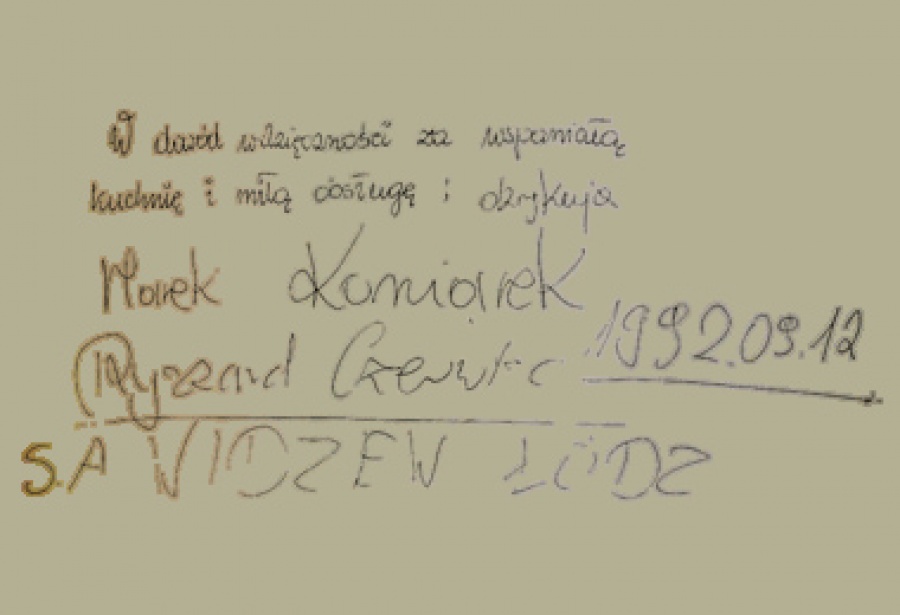 W dowód wdzięczności za wspaniałą
kuchnię i miłą obsługę i
Marek Koniarek
Ryszard Czerwiec 1992.09.12
S.A WIDZEW ŁÓDZ